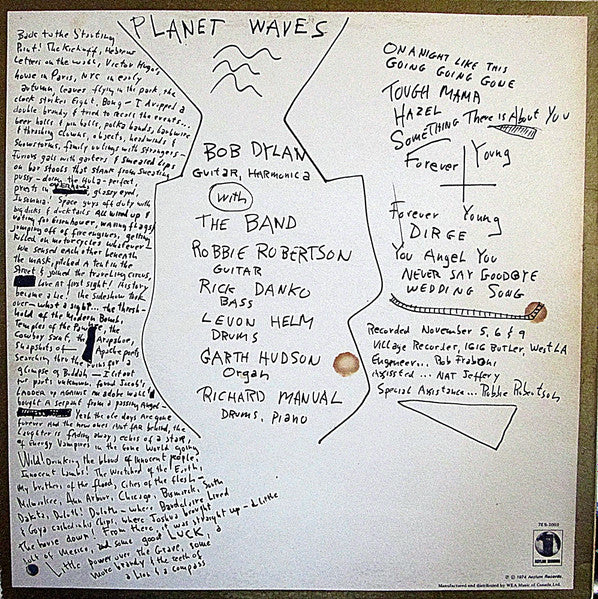 PLANET WAVES
Back to the Starting
Point! The Kickoff, Hebrew
Letters on the wall, Victor Hugo's
house in Paris, NYC in early
autumn, leaves flying in the park, the
clock strikes Eight, Bong - I dropped a
double brandy & tried to recall the events...
beer halls & pin balls, polka bands, barbwire
& thrashing clowns, objects, headwinds &
snowstorms, family outings with strangers -
furious gals with garters & smeared lips
on bar stools that stank from sweating
pussy - doing the Hula - perfect,
priests in glassy eyed,
Insomnia! Space guys off duty with
big dicks & ducktails all wired up &
voting for Eisenhower, waving flags &
jumping off of fire engines, getting
killed on motorcycles whatever -
We sensed each other beneath
the mask, pitched a tent in the
Street & joined the traveling circus,
love at first sight! History
became a Lie! the sideshow took
over - what a sight... the thresh-
hold of the Modern Bomb,
Temples of the Pawnee, the
Cowboy saint, the Arapahoe,
snapshots of - Apache poets
searching thru the ruins for a
glimpse of Buddah - I lit out
for parts unknown, found Jacob's
Ladder up against an adobe wall &
bought a serpent from a passing Angel -
Yeah the ole days are gone
forever and the new ones aint far behind, the
Laughter is fading away, echos of a star,
of Energy Vampires in the Gone World going
Wild! Drinking the blood of innocent people,
Innocent Lambs! The Wretched of the Earth,
my brothers of the flood, Cities of the flesh -
Milwaukee, Ann Arbor, Chicago, Bismarck, South
Dakota, Duluth! Duluth - where Baudelaire Lived
& Goya cashed in his Chips, where Joshua brought
the house down! From there, it was straight up - a Little
jolt of Mexico, and some good LUCK, a
Little power over the Grave, some
more brandy & the teeth of
a Lion & a compass
BOB DYLAN
Guitar, Harmonica
with
THE BAND
ROBBIE ROBERTSON
GUITAR
RICK DANKO
BASS
LEVON HELM
DRUMS
GARTH HUDSON
Organ
RICHARD MANUAL
DRUMS, Piano
ON A NIGHT LIKE THIS
GOING GOING GONE
TOUGH MAMA
HAZEL
SOMETHING There is About You
Forever Young
Forever Young
DIRGE
You Angel You
NEVER SAY GOODBYE
WEDDING SONG
Recorded November 5, 6 & 9
Village Recorder, 1616 Butler, West LA
Engineer... Rob Fraboni
Assisted... Nat Jeffery
Special Assistance... Robbie Robertson
7ES-1003
ASYLUM RECORDS
℗ © 1974 Asylum Records.
Manufactured and distributed by WEA Music of Canada, Ltd.